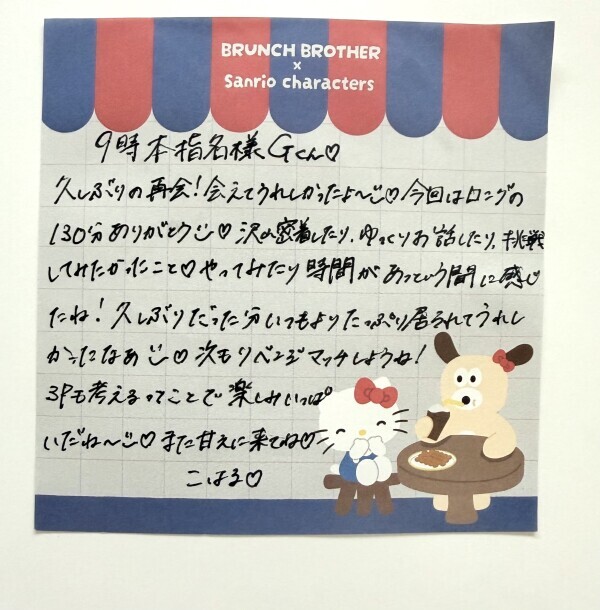 BRUNCH BROTHER
×
Sanrio characters
9時本指名様Gくん♡
久しぶりの再会！会えてうれしかったよ〜♡今回はロングの
130分ありがとう♡沢山密着したり、ゆっくりお話したり、挑戦
してみたかったこと♡やってみたり時間があっという間に感じ
たね！久しぶりだった分いつもよりたっぷり居られてうれし
かったなあ♡次もリベンジマッチしようね！
3Pも考えるってことで楽しみいっぱ
いだね〜♡また甘えに来てね♡
こはる♡